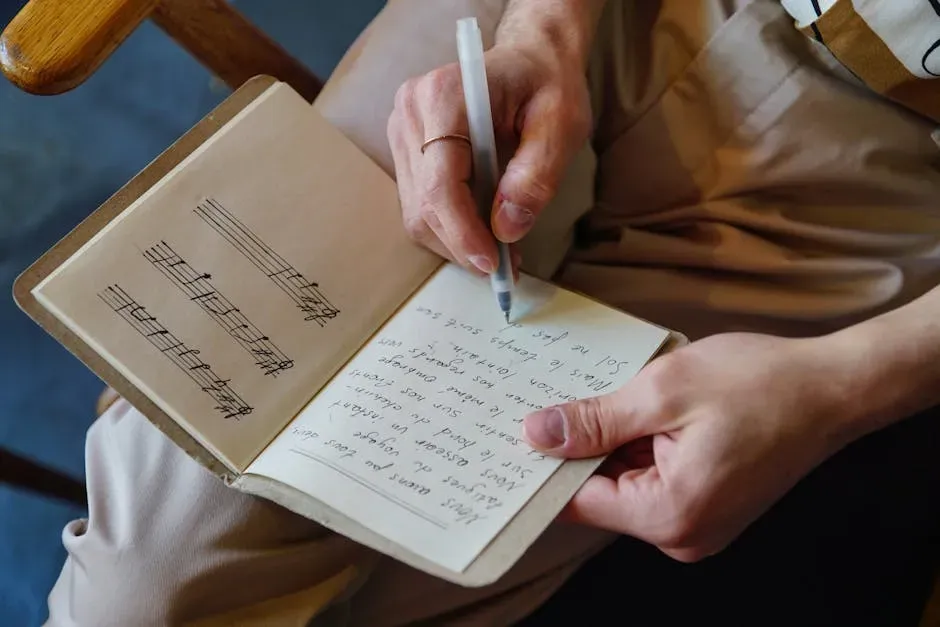 Nous avons pas tous deux,
fatigues du voyage
Nous asseoir un instant
Sur le bord du chemin-
sentir Sur nos fronts
le même ombrage
porter nos regards vers
horizon lointain.
Mais le temps suit son
Sol ne pas